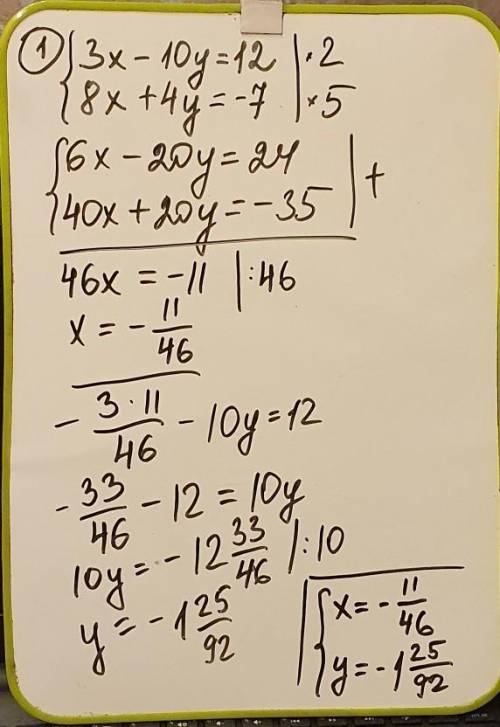 ① { 3x - 10y = 12 | · 2
{ 8x + 4y = -7 | × 5
{ 6x - 20y = 24 | +
{ 40x + 20y = -35 |
46x = -11 | : 46
x = - 11/46
- 3 · 11/46 - 10y = 12
- 33/46 - 12 = 10y
10y = - 12 33/46 | : 10
y = - 1 25/92
{ x = - 11/46
{ y = - 1 25/92